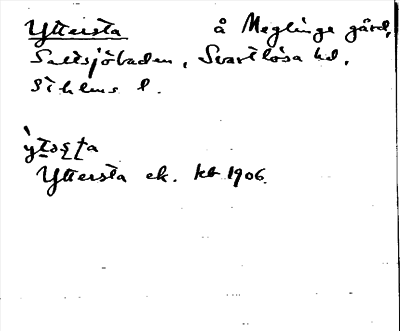 Yttersta å Meglinge gård,
Saltsjöbaden, Svartlösa hd,
Sthlms l.
Yttersta ek. kb 1906.